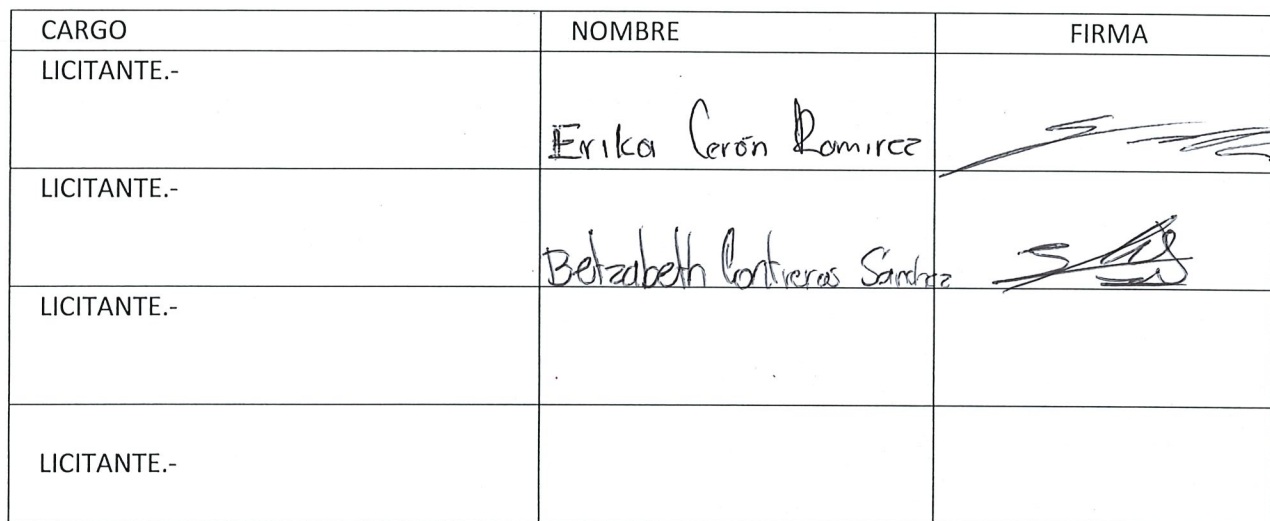 CARGO NOMBRE FIRMA
LICITANTE.-
Erika Cerón Ramirez
LICITANTE.-
Betzabeth Contreras Sánchez
LICITANTE.-
LICITANTE.-